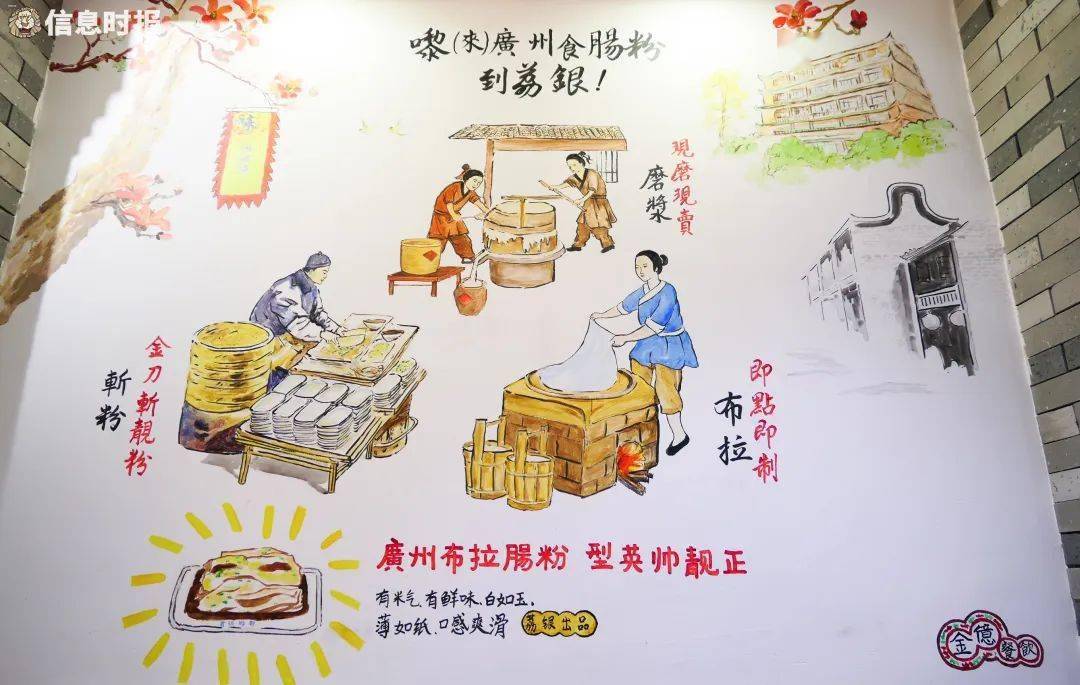 信息时报
嚟(來)廣州食腸粉
到荔銀!
現磨現賣
磨漿
金刀斬靚粉
斬粉
即點即制
布拉
廣州布拉腸粉 型英帅靓正
有米气,有鲜味,白如玉,
薄如纸、口感爽滑
荔银出品
金億餐飲